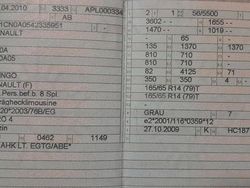 .04.2010 3333 APL000334
AB
1CN0A0542335951
NAULT
0A
05A
NGO
NAULT (F)
.Pers.bef.b. 8 Spl.
rägheckIimousine
20*2003/76B/EG
RO 4
zin
0462 1149
AHK LT. EGTG/ABE*
2 1 56/5500
3602-- 1655--
1470-- 1019--
- 65 -
135 1370 1370
350 - -
82 4125 71
350 750 4 -
165/65 R14 (79)T
165/65 R14 (79)T
GRAU 7
e2*2001/116*0359*12
27.10.2009 K HC187